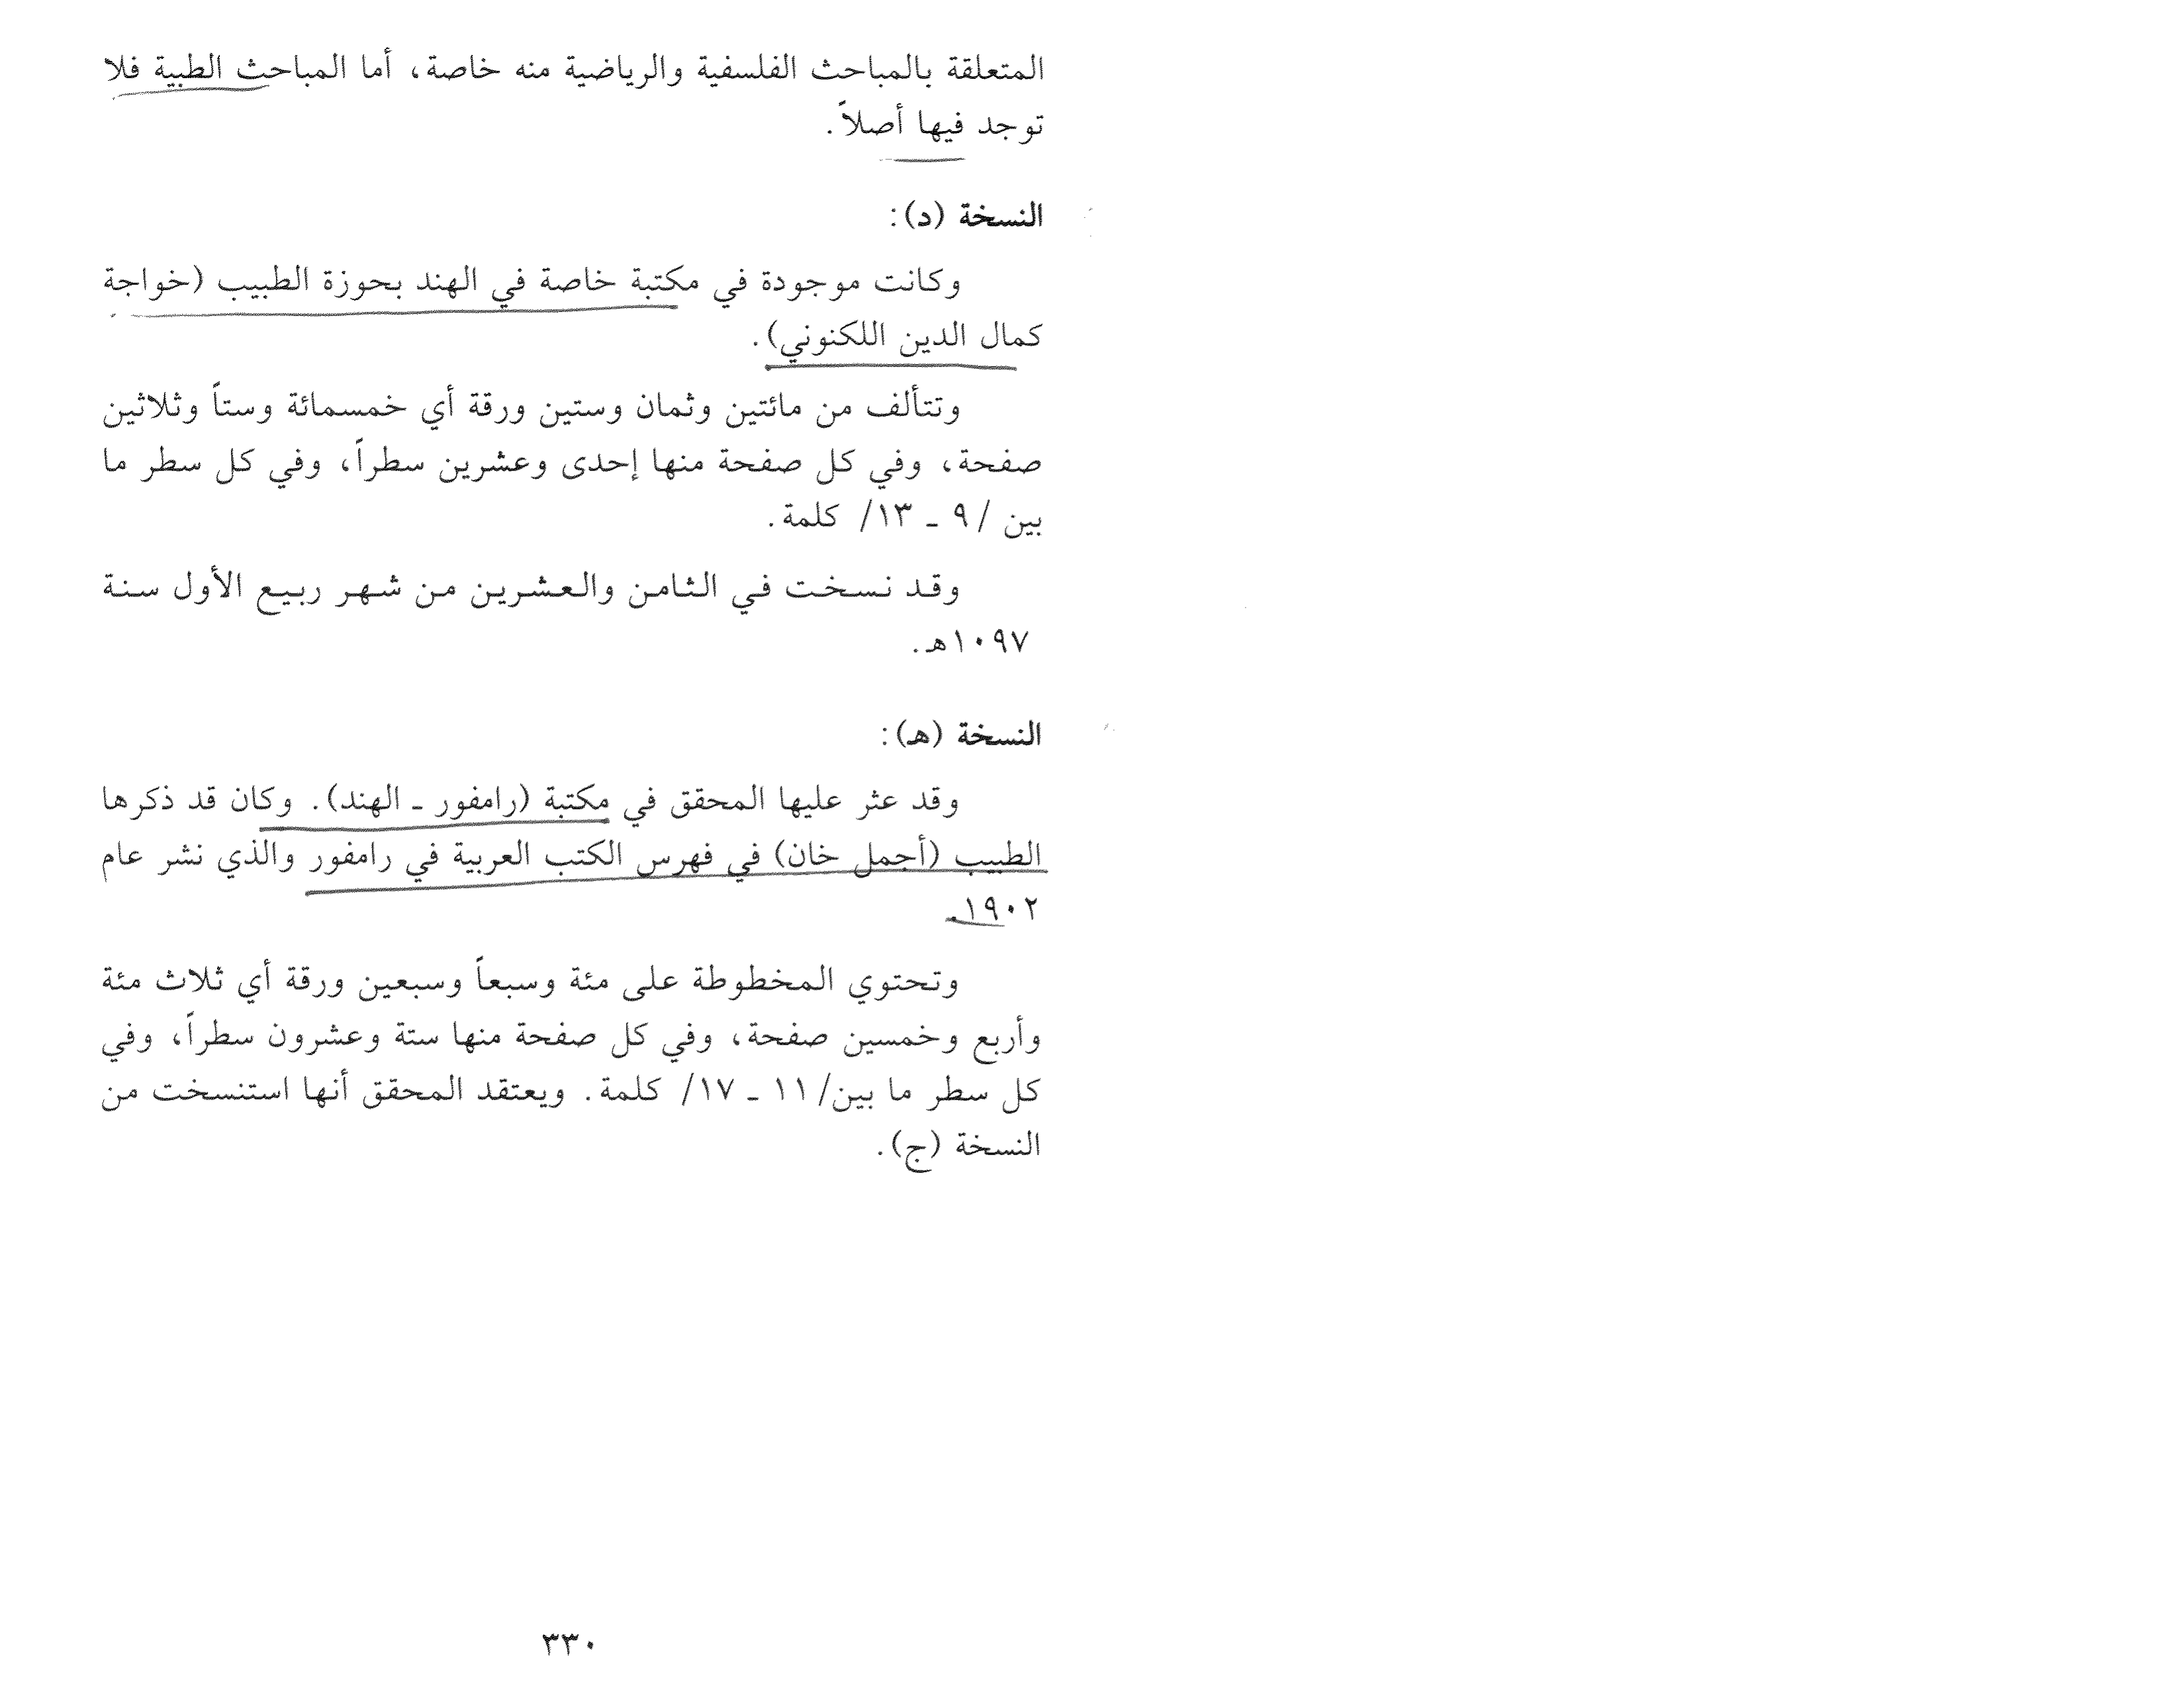 المتعلقة بالمباحث الفلسفية والرياضية منه خاصة، أما المباحث الطبية فلا
توجد فيها أصلاً.
النسخة (د):
وكانت موجودة في مكتبة خاصة في الهند بحوزة الطبيب (خواجة
كمال الدين اللكنوني).
وتتألف من مائتين وثمان وستين ورقة أي خمسمائة وستاً وثلاثين
صفحة، وفي كل صفحة منها إحدى وعشرين سطراً، وفي كل سطر ما
بين /٩ ـ ١٣/ كلمة.
وقد نسخت في الثامن والعشرين من شهر ربيع الأول سنة
١٠٩٧هـ.
النسخة (هـ):
وقد عثر عليها المحقق في مكتبة (رامفور ـ الهند). وكان قد ذكرها
الطبيب (أجمل خان) في فهرس الكتب العربية في رامفور والذي نشر عام
١٩٠٢.
وتحتوي المخطوطة على مئة وسبعاً وسبعين ورقة أي ثلاث مئة
وأربع وخمسين صفحة، وفي كل صفحة منها ستة وعشرون سطراً، وفي
كل سطر ما بين/ ١١ ـ ١٧/ كلمة. ويعتقد المحقق أنها استنسخت من
النسخة (ج).
٣٣٠